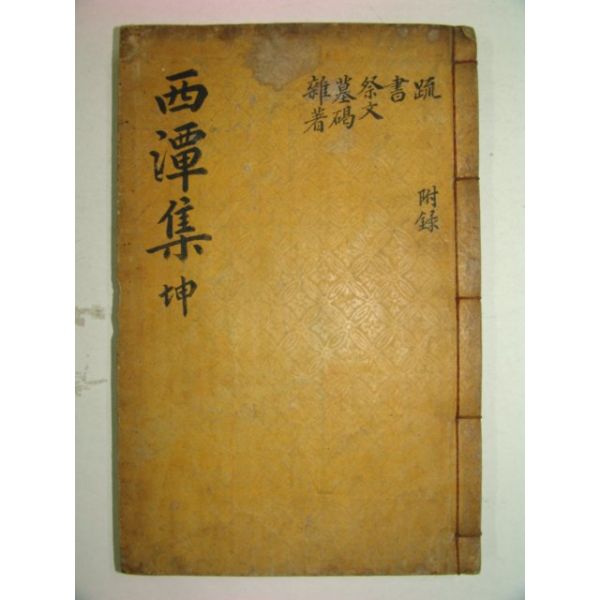 疏
書
祭文
墓碣
雜著
附録
西潭集 坤